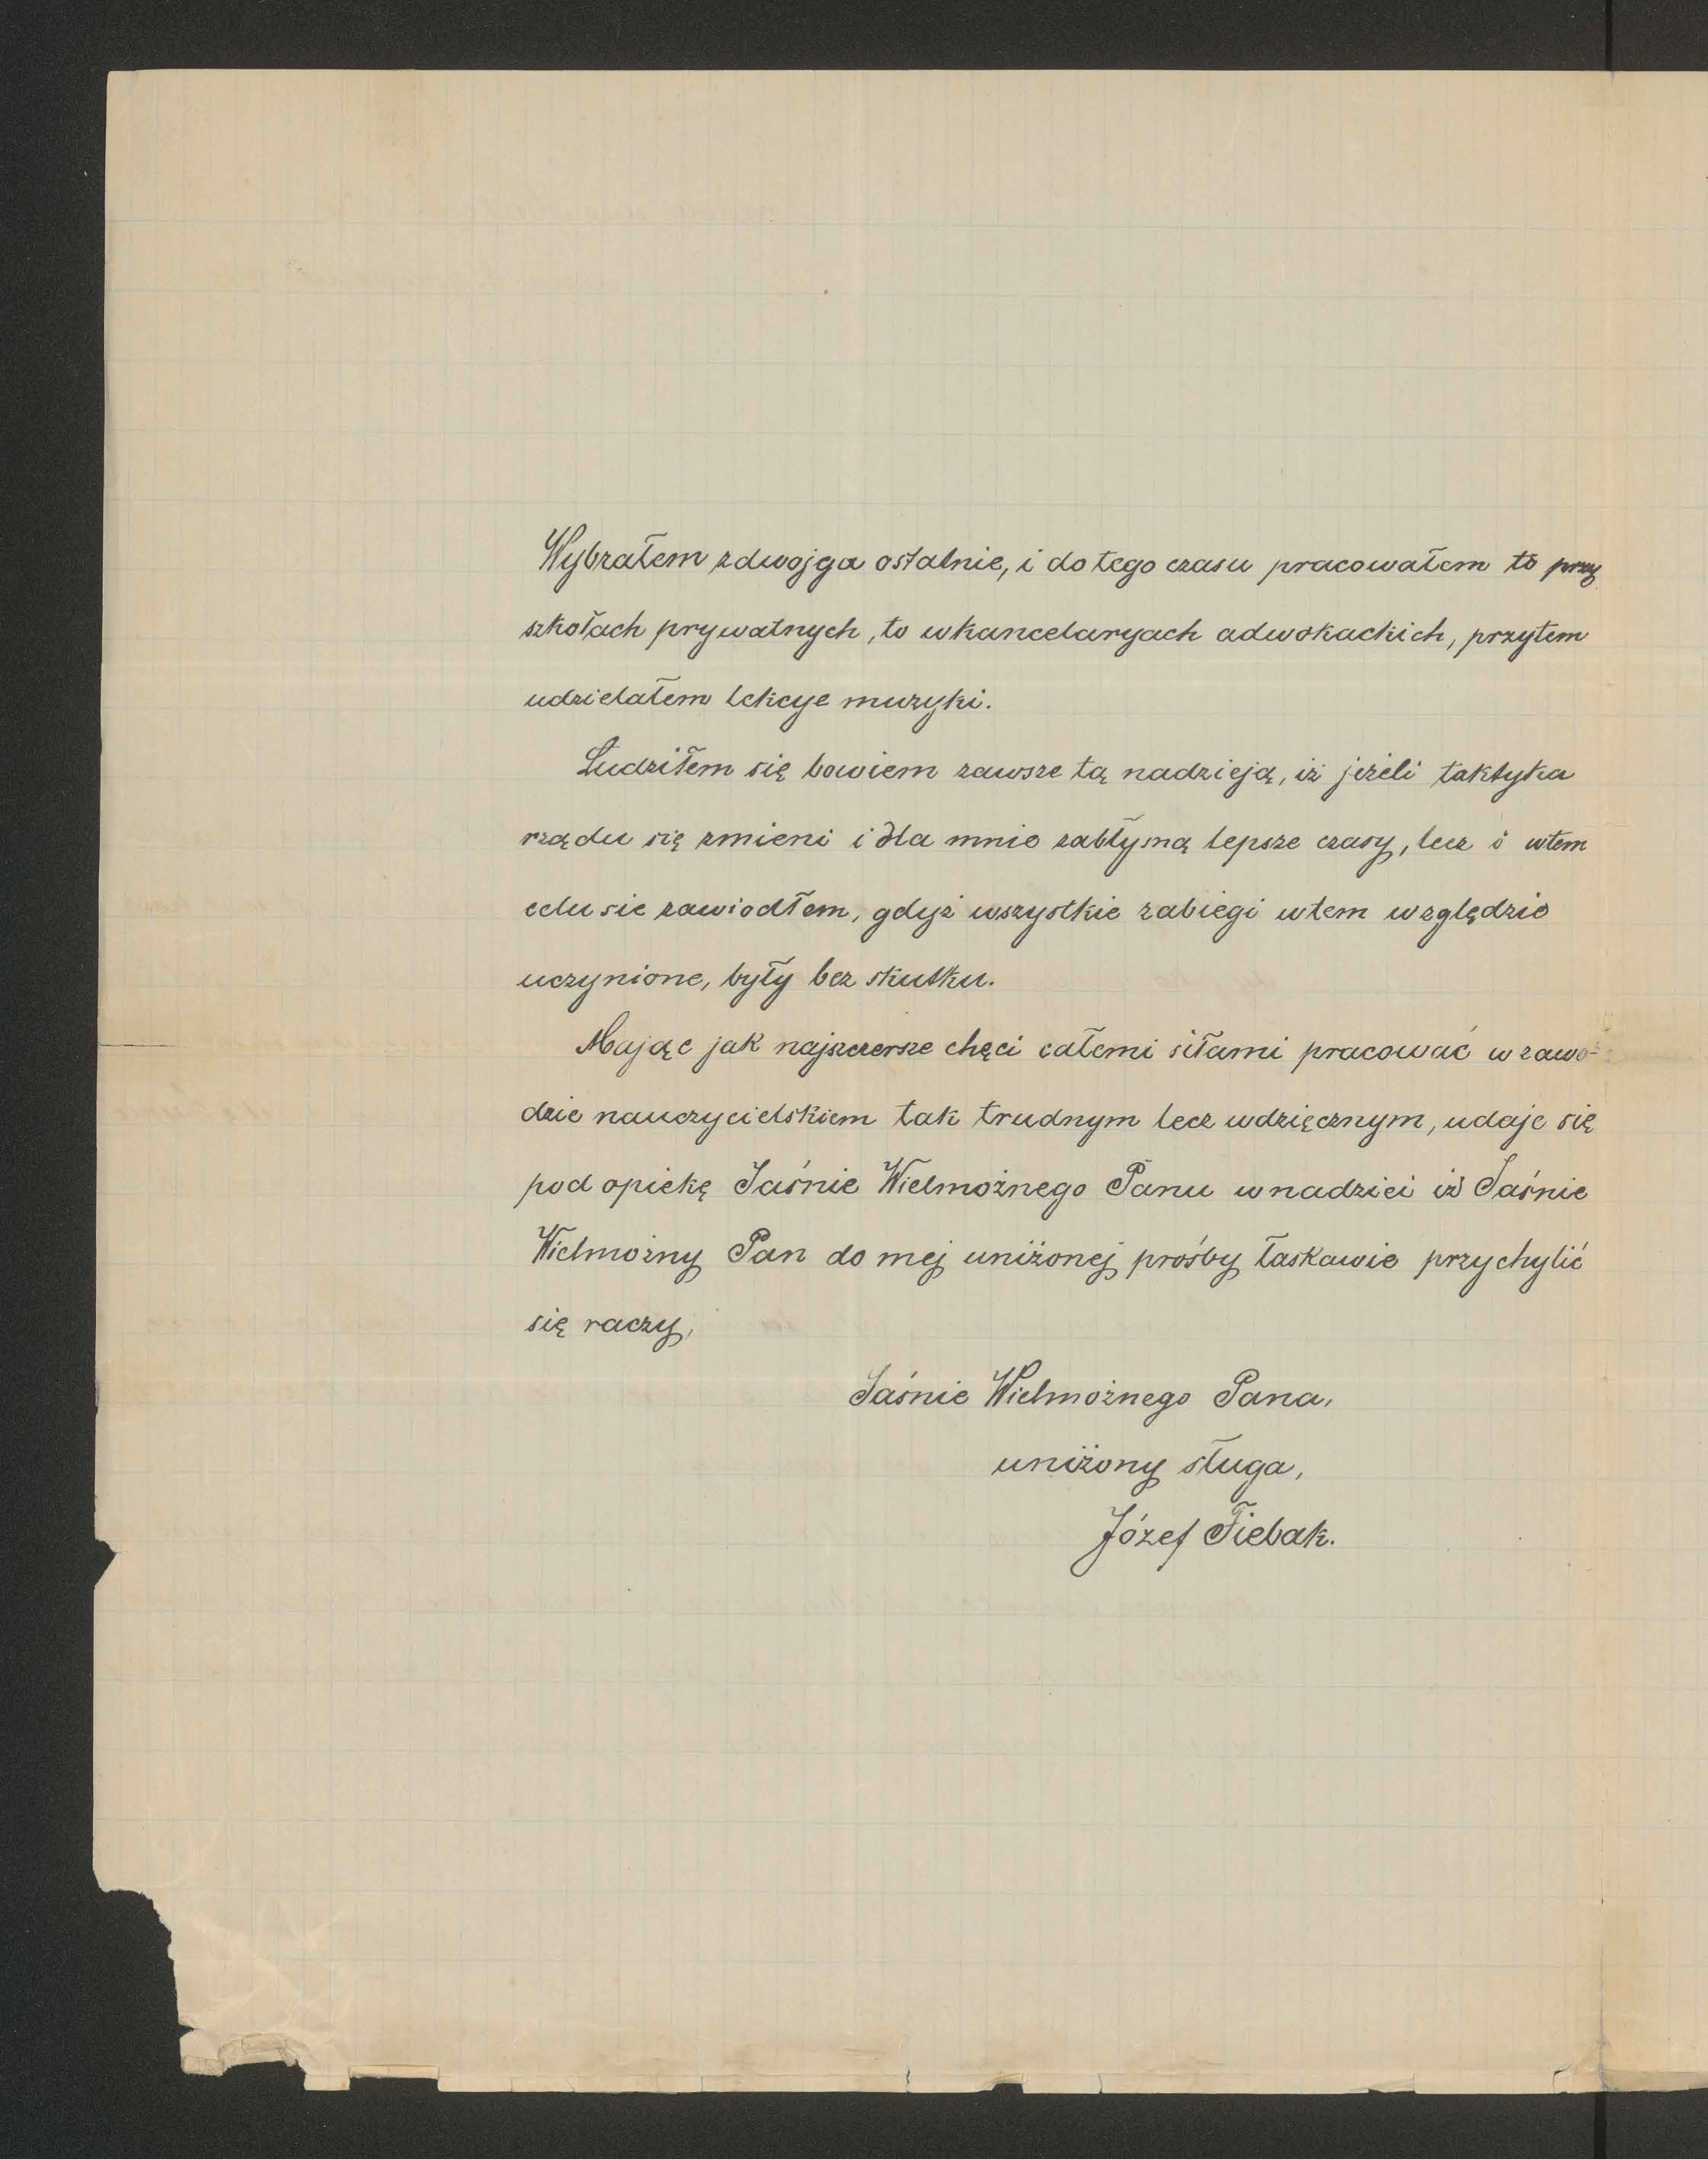 Wybrałem zdwojga ostatnie, i do tego czasu pracowałem to przy
szkołach prywatnych, to wkancelaryach adwokackich, przytem
udzielałem lekcye muzyki.
Łudziłem się bowiem zawsze tą nadzieją, iż jeżeli taktyka
rządu się zmieni i dla mnie zabłysną lepsze czasy, lecz i wtem
celu sie zawiodłem, gdyż wszystkie zabiegi wtem względzie
uczynione, były bez skutku.
Mając jak najszczersze chęci całemi siłami pracować w zawo-
dzie nauczycielskiem tak trudnym lecz wdzięcznym, udaje się
pod opiekę Jaśnie Wielmożnego Panu wnadziei iż Jaśnie
Wielmożny Pan do mej uniżonej prośby łaskawie przychylić
się raczy,
Jaśnie Wielmożnego Pana,
uniżony sługa,
Józef Fiebak.